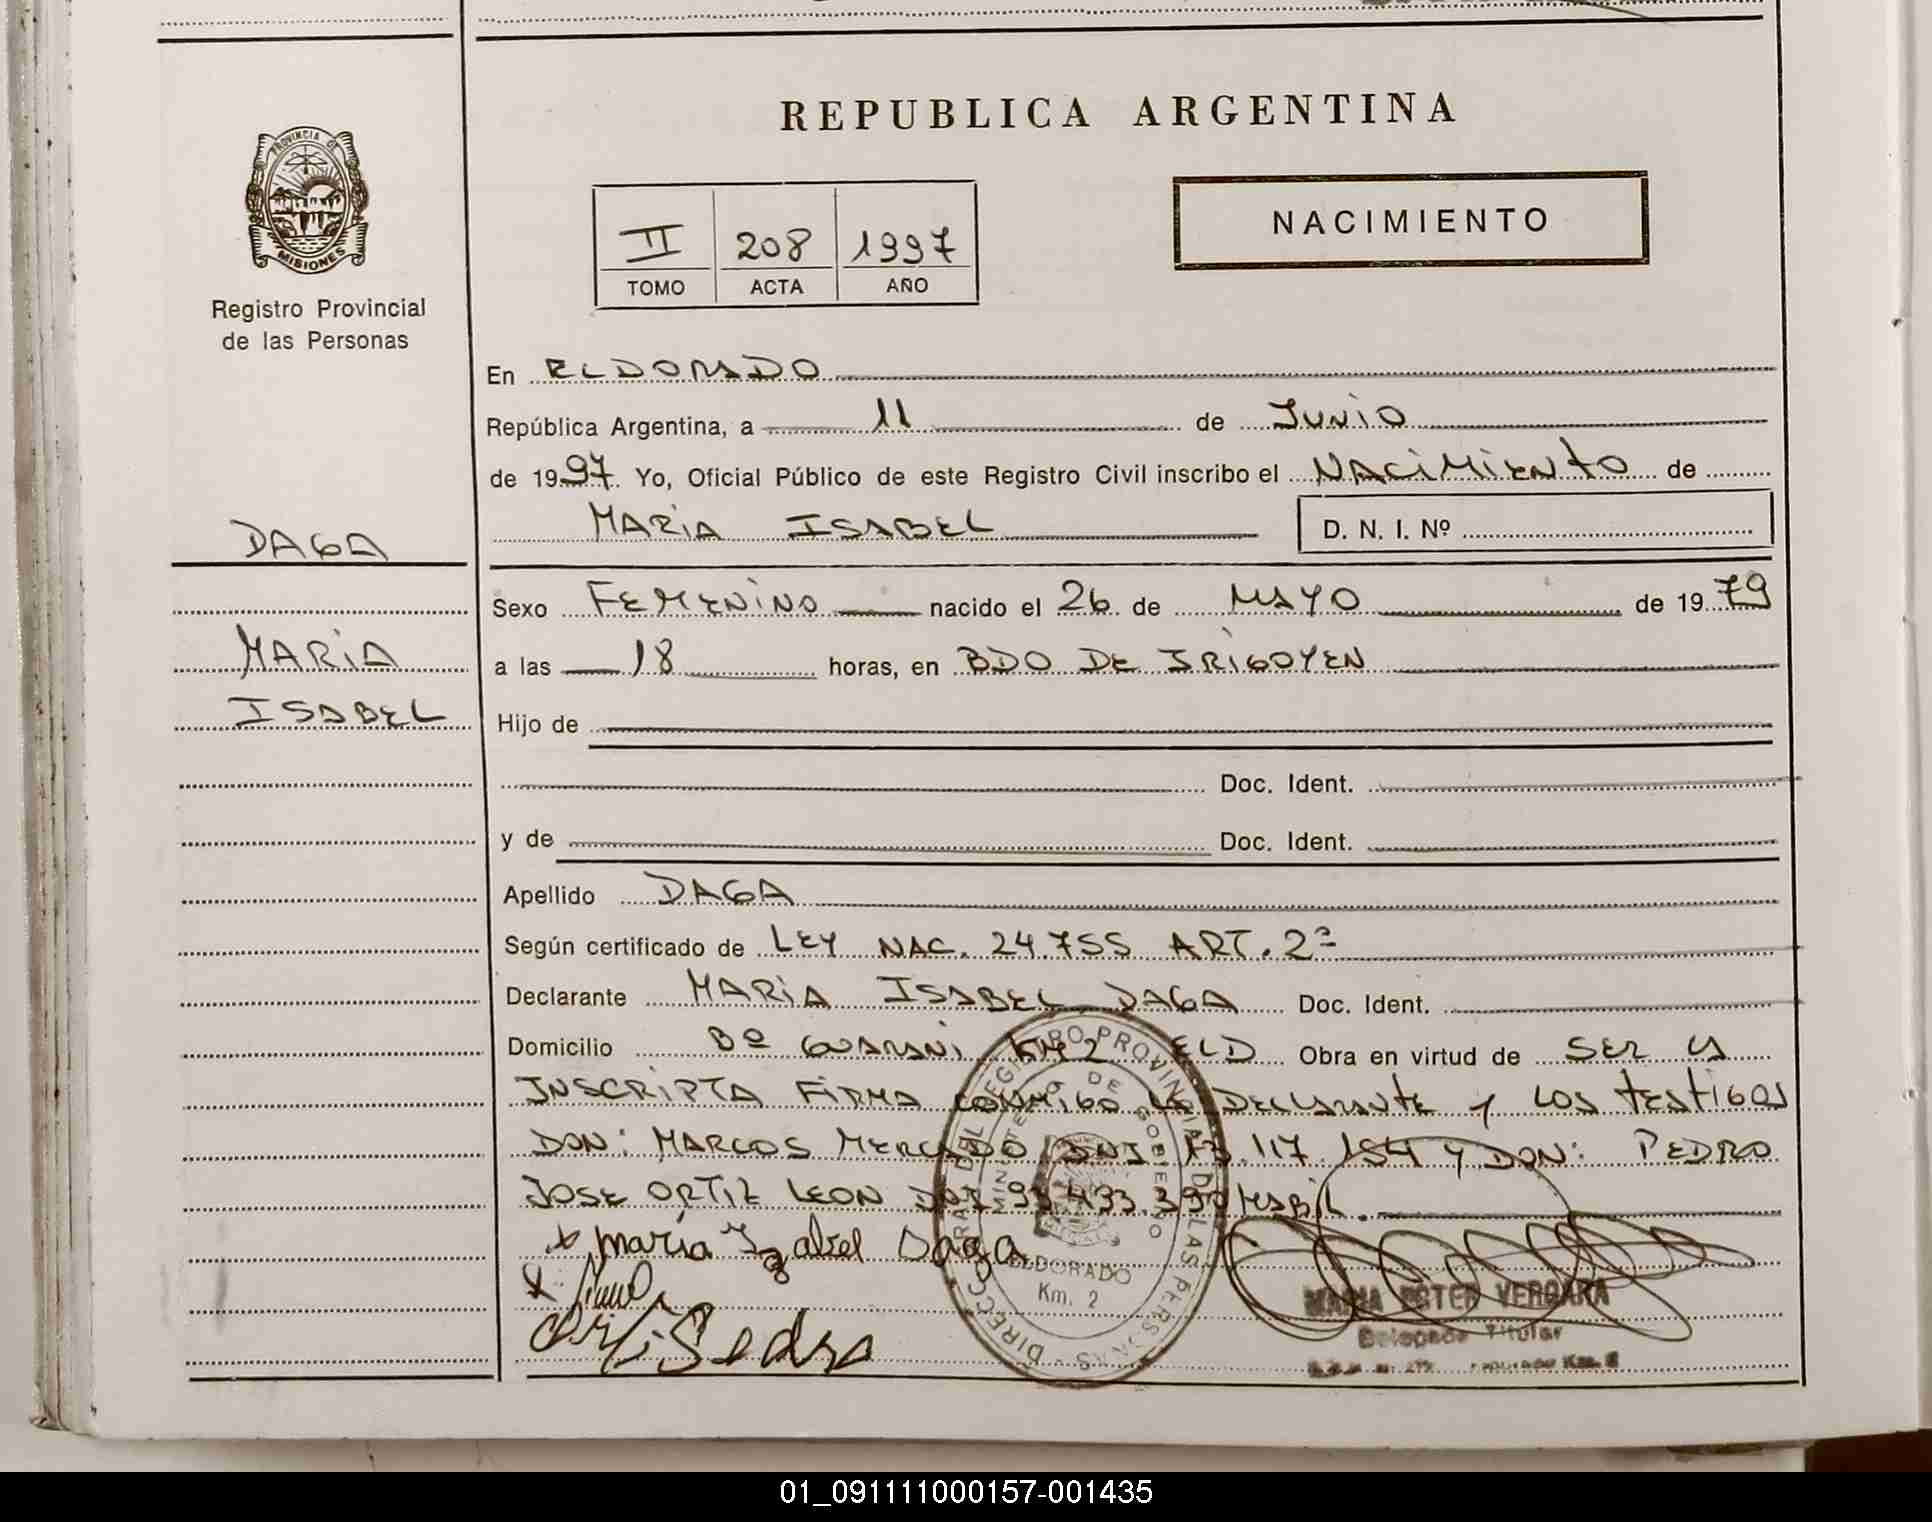 REPUBLICA ARGENTINA
PROVINCIA DE
MISIONES
Registro Provincial
de las Personas
II 208 1997
TOMO ACTA AÑO
NACIMIENTO
En ELDORADO
República Argentina, a 11 de JUNIO
de 1997. Yo, Oficial Público de este Registro Civil inscribo el NACIMIENTO de
MARIA ISABEL D. N. I. Nº
DAGA
MARIA
ISABEL
Sexo FEMENINO nacido el 26 de MAYO de 1979
a las 18 horas, en BDO DE IRIGOYEN
Hijo de
Doc. Ident.
y de Doc. Ident.
Apellido DAGA
Según certificado de LEY NAC. 24.755 ART. 2º
Declarante MARIA ISABEL DAGA Doc. Ident.
Domicilio Bº GUARANI KM 2 ELD Obra en virtud de SER LA
INSCRIPTA FIRMA CONMIGO LA DECLARANTE Y LOS TESTIGOS
DON: MARCOS MERCADO DNI 13.117.154 Y DON: PEDRO
JOSE ORTIZ LEON DNI 93.433.390 HABIL.
x maria Izabel Daga
x
DIRECC GRAL DEL REGISTRO PROVINCIAL DE LAS PERSONAS
MINISTERIO DE GOBIERNO
ELDORADO
Km. 2
MARIA ESTER VERGARA
Delegada Titular
Km. 2
01_091111000157-001435